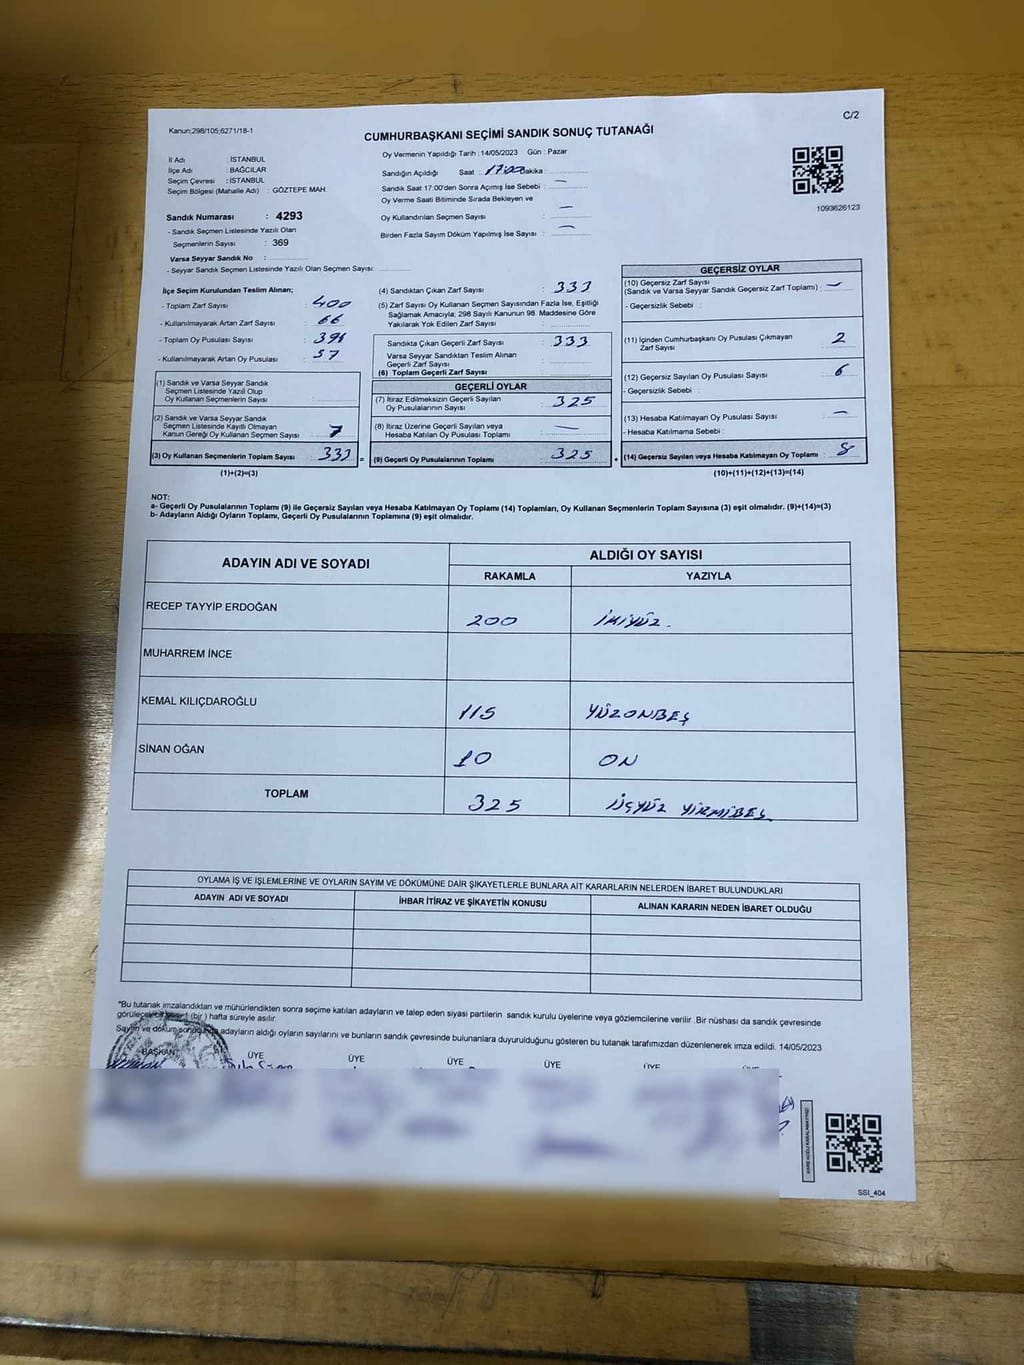 Kanun;298/105;6271/18-1
C/2
CUMHURBAŞKANI SEÇİMİ SANDIK SONUÇ TUTANAĞI
İl Adı : İSTANBUL
İlçe Adı : BAĞCILAR
Seçim Çevresi : İSTANBUL
Seçim Bölgesi (Mahalle Adı) : GÖZTEPE MAH.
Sandık Numarası : 4293
- Sandık Seçmen Listesinde Yazılı Olan
Seçmenlerin Sayısı : 369
Varsa Seyyar Sandık No :
- Seyyar Sandık Seçmen Listesinde Yazılı Olan Seçmen Sayısı:
Oy Vermenin Yapıldığı Tarih :14/05/2023 Gün : Pazar
Sandığın Açıldığı Saat : 17:00 Dakika :
Sandık Saat 17:00'den Sonra Açımış İse Sebebi : —
Oy Verme Saati Bitiminde Sırada Bekleyen ve
Oy Kullandırılan Seçmen Sayısı : —
Birden Fazla Sayım Döküm Yapılmış İse Sayısı : —
1093626123
İlçe Seçim Kurulundan Teslim Alınan;
- Toplam Zarf Sayısı : 400
- Kullanılmayarak Artan Zarf Sayısı : 66
- Toplam Oy Pusulası Sayısı :
- Kullanılmayarak Artan Oy Pusulası : 57
(1) Sandık ve Varsa Seyyar Sandık
Seçmen Listesinde Yazılı Olup
Oy Kullanan Seçmenlerin Sayısı :
(2) Sandık ve Varsa Seyyar Sandık
Seçmen Listesinde Kayıtlı Olmayan
Kanun Gereği Oy Kullanan Seçmen Sayısı : 7
(3) Oy Kullanan Seçmenlerin Toplam Sayısı : 333 =
(1)+(2)=(3)
(4) Sandıktan Çıkan Zarf Sayısı : 333
(5) Zarf Sayısı Oy Kullanan Seçmen Sayısından Fazla İse, Eşitliği
Sağlamak Amacıyla; 298 Sayılı Kanunun 98. Maddesine Göre
Yakılarak Yok Edilen Zarf Sayısı :
Sandıkta Çıkan Geçerli Zarf Sayısı : 333
Varsa Seyyar Sandıktan Teslim Alınan
Geçerli Zarf Sayısı :
(6) Toplam Geçerli Zarf Sayısı :
GEÇERLİ OYLAR
(7) İtiraz Edilmeksizin Geçerli Sayılan
Oy Pusulalarının Sayısı : 325
(8) İtiraz Üzerine Geçerli Sayılan veya
Hesaba Katılan Oy Pusulası Toplamı : —
(9) Geçerli Oy Pusulalarının Toplamı : 325 +
GEÇERSİZ OYLAR
(10) Geçersiz Zarf Sayısı
(Sandık ve Varsa Seyyar Sandık Geçersiz Zarf Toplamı) : —
- Geçersizlik Sebebi :
(11) İçinden Cumhurbaşkanı Oy Pusulası Çıkmayan
Zarf Sayısı : 2
(12) Geçersiz Sayılan Oy Pusulası Sayısı : 6
- Geçersizlik Sebebi :
(13) Hesaba Katılmayan Oy Pusulası Sayısı : —
- Hesaba Katılmama Sebebi :
(14) Geçersiz Sayılan veya Hesaba Katılmayan Oy Toplamı : 8
(10)+(11)+(12)+(13)=(14)
NOT:
a- Geçerli Oy Pusulalarının Toplamı (9) ile Geçersiz Sayılan veya Hesaba Katılmayan Oy Toplamı (14) Toplamları, Oy Kullanan Seçmenlerin Toplam Sayısına (3) eşit olmalıdır. (9)+(14)=(3)
b- Adayların Aldığı Oyların Toplamı, Geçerli Oy Pusulalarının Toplamına (9) eşit olmalıdır.
ADAYIN ADI VE SOYADI
ALDIĞI OY SAYISI
RAKAMLA YAZIYLA
RECEP TAYYİP ERDOĞAN 200 İKİYÜZ.
MUHARREM İNCE
KEMAL KILIÇDAROĞLU 115 YÜZONBEŞ
SİNAN OĞAN 10 ON
TOPLAM 325 ÜÇYÜZ YİRMİBEŞ
OYLAMA İŞ VE İŞLEMLERİNE VE OYLARIN SAYIM VE DÖKÜMÜNE DAİR ŞİKAYETLERLE BUNLARA AİT KARARLARIN NELERDEN İBARET BULUNDUKLARI
ADAYIN ADI VE SOYADI İHBAR İTİRAZ VE ŞİKAYETİN KONUSU ALINAN KARARIN NEDEN İBARET OLDUĞU
*Bu tutanak imzalandıktan ve mühürlendikten sonra seçime katılan adayların ve talep eden siyasi partilerin sandık kurulu üyelerine veya gözlemcilerine verilir .Bir nüshası da sandık çevresinde
görülecek bir yere 1 (bir ) hafta süreyle asılır.
Sayım ve döküm sonucunda adayların aldığı oyların sayılarını ve bunların sandık çevresinde bulunanlara duyurulduğunu gösteren bu tutanak tarafımızdan düzenlenerek imza edildi. 14/05/2023
BAŞKAN ÜYE ÜYE ÜYE ÜYE ÜYE
SSI_404